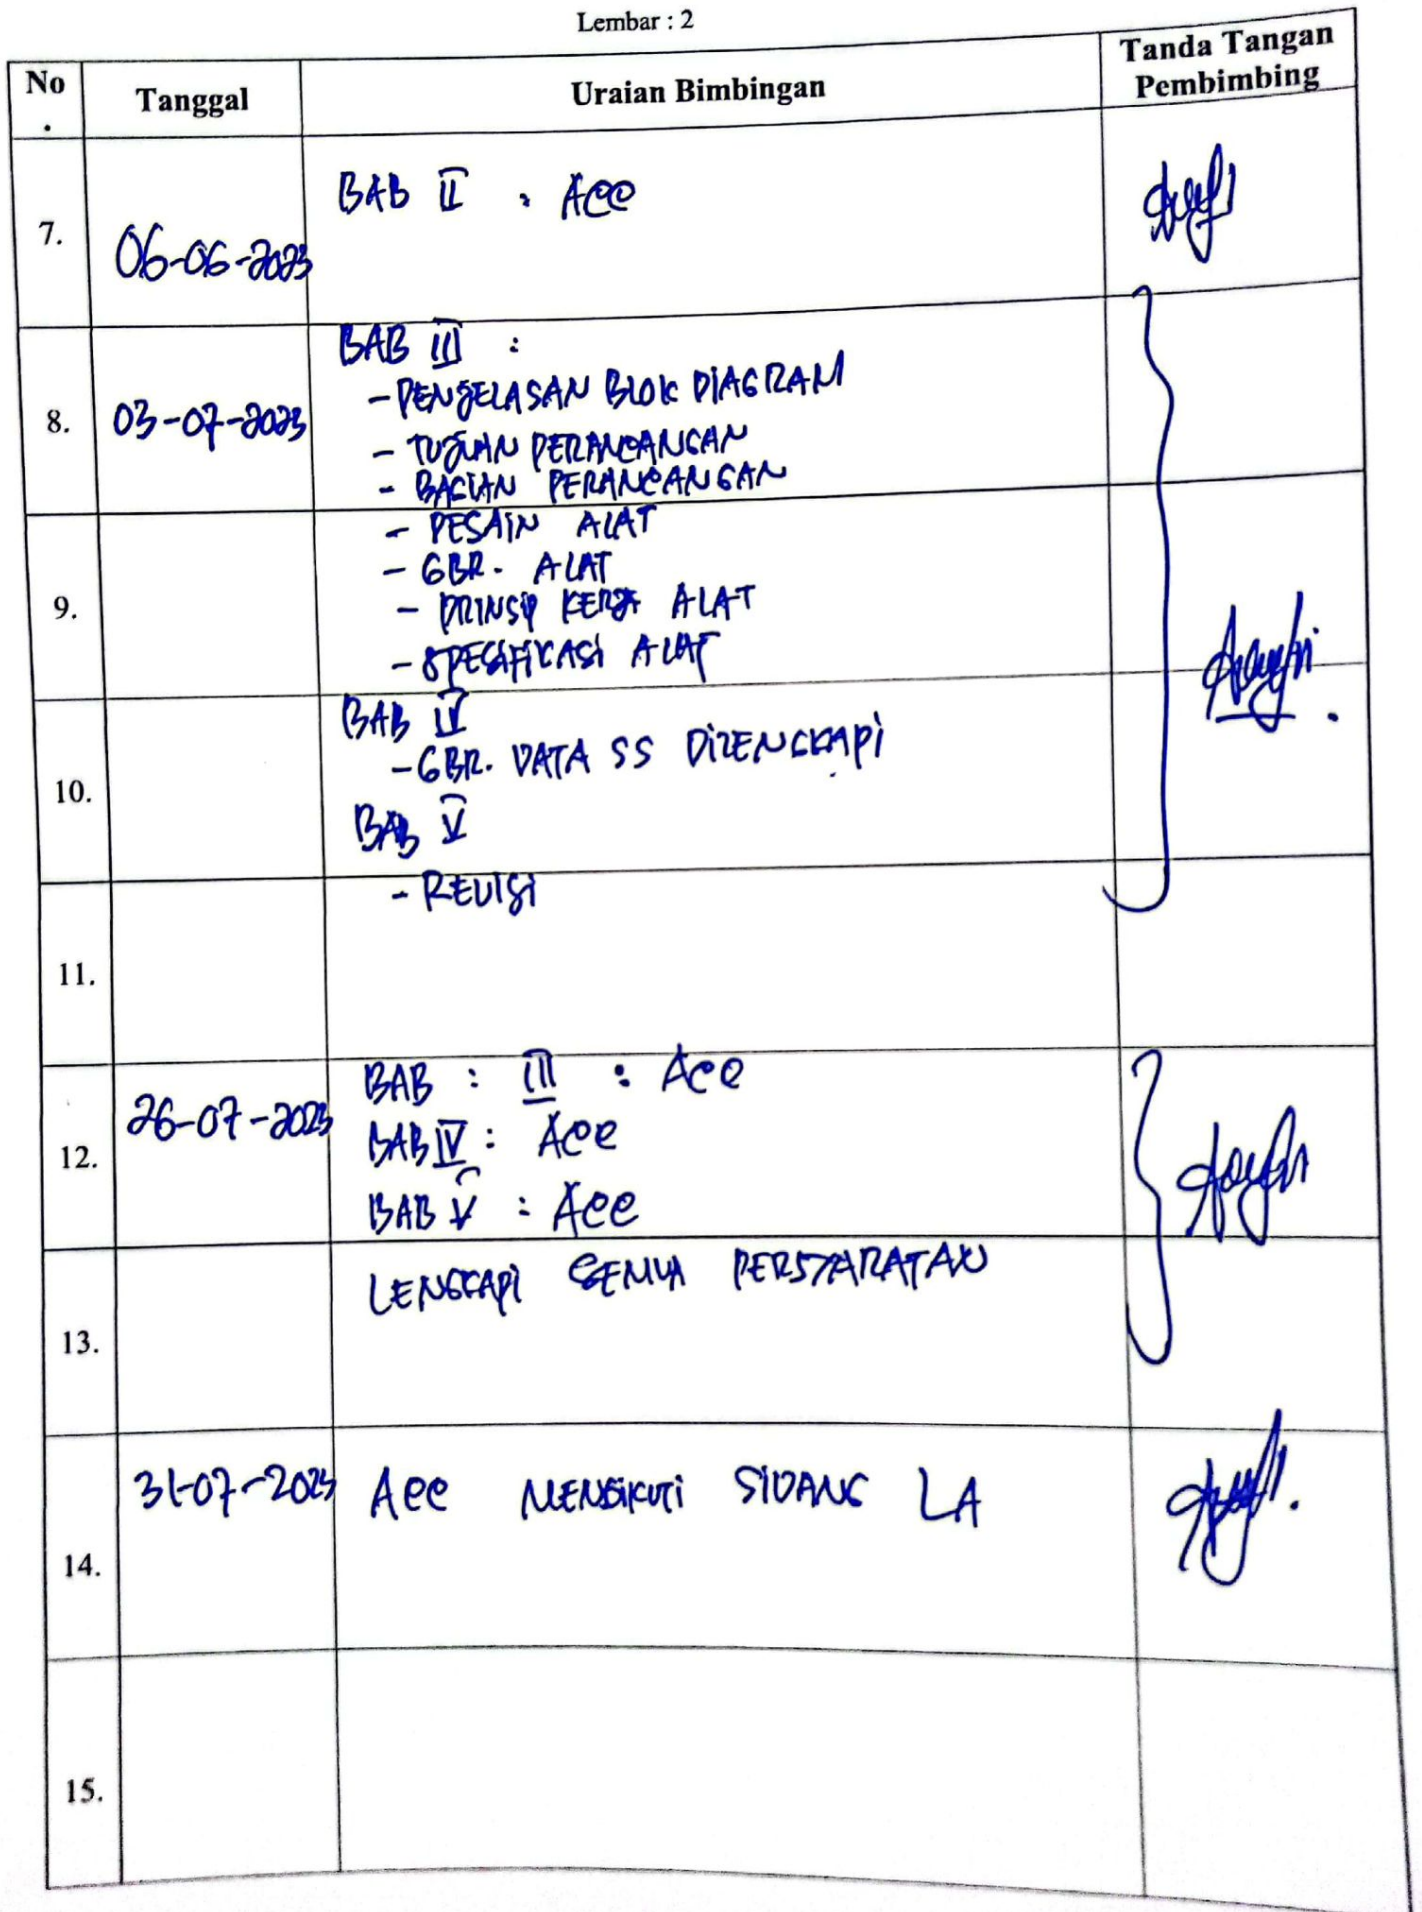 Lembar : 2
No. Tanggal Uraian Bimbingan Tanda Tangan Pembimbing
7. 06-06-2023 BAB II : Acc
8. 03-07-2023 BAB III :
- PENJELASAN BLOK DIAGRAM
- TUJUAN PERANCANGAN
- BAGIAN PERANCANGAN
9.
- DESAIN ALAT
- GBR. ALAT
- PRINSIP KERJA ALAT
- SPESIFIKASI ALAT
10.
BAB IV
- GBR. DATA SS DILENGKAPI
BAB V
11.
- REVISI
12. 26-07-2023 BAB : III : Acc
BAB IV : Acc
BAB V : Acc
13. LENGKAPI SEMUA PERSYARATAN
14. 31-07-2023 Acc MENGIKUTI SIDANG LA
15.